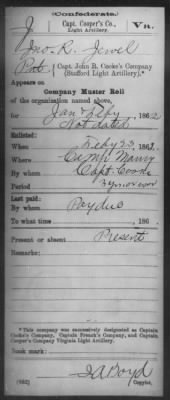 (Confederate.)
J Capt. Cooper's Co., Va.
Light Artillery.
Jno. R. Jewel
Pvt., Capt. John R. Cooke's Company
(Stafford Light Artillery).*
Appears on
Company Muster Roll
of the organization named above,
for Jan & Feby, 1862
Not dated
Enlisted:
When Feby 23, 1862.
Where Camp Maury
By whom Capt. Cooke
Period 3 yrs or war
Last paid:
By whom Paydue
To what time , 186 .
Present or absent Present
Remarks:
*This company was successively designated as Captain
Cooke's Company, Captain French's Company, and Captain
Cooper's Company Virginia Light Artillery.
Book mark:
(642) Boyd
Copyist.